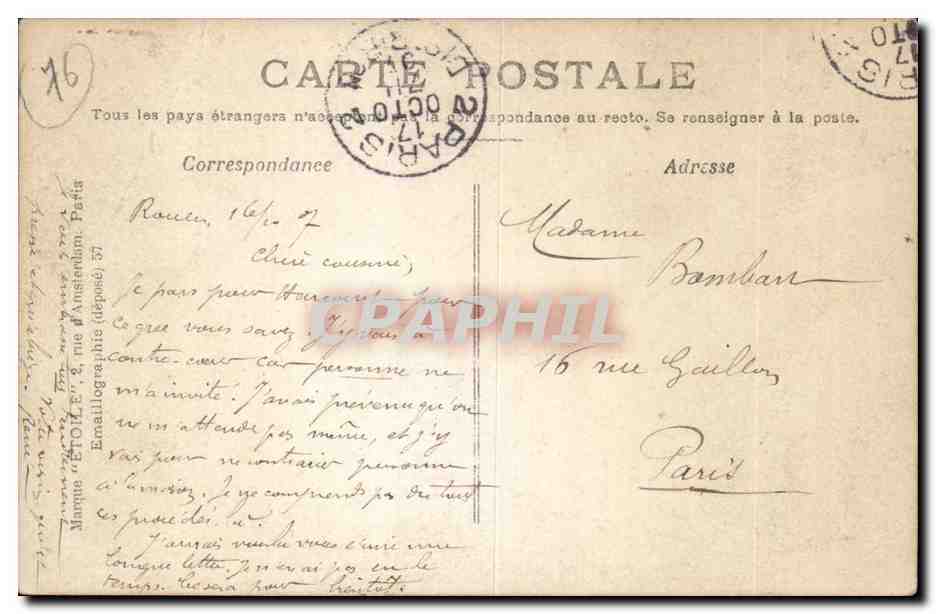 76
CARTE POSTALE
Tous les pays étrangers n'acceptent pas la correspondance au recto. Se renseigner à la poste.
Correspondance
Adresse
PARIS 2
17
OCTO
Rouen, 16/10 07
Chère cousine,
Je pars pour Harcourt pour
ce que vous savez. J'y vais à
contre-cœur car personne ne
m'a invité. J'avais prévenu qu'on
ne m'attende pas même, et j'y
vais pour ne contrarier personne
à la maison. Je ne comprends pas du tout
ces procédés.
J'aurais voulu vous écrire une
longue lettre. Je n'en ai pas eu le
temps. Ce sera pour bientôt.
Je vous embrasse
Madame
Bombart
16 rue Gaillon
Paris
Marque "ETOILE", 2, rue d'Amsterdam. Paris
Emaillographie (déposé) 57
CPAPHIL